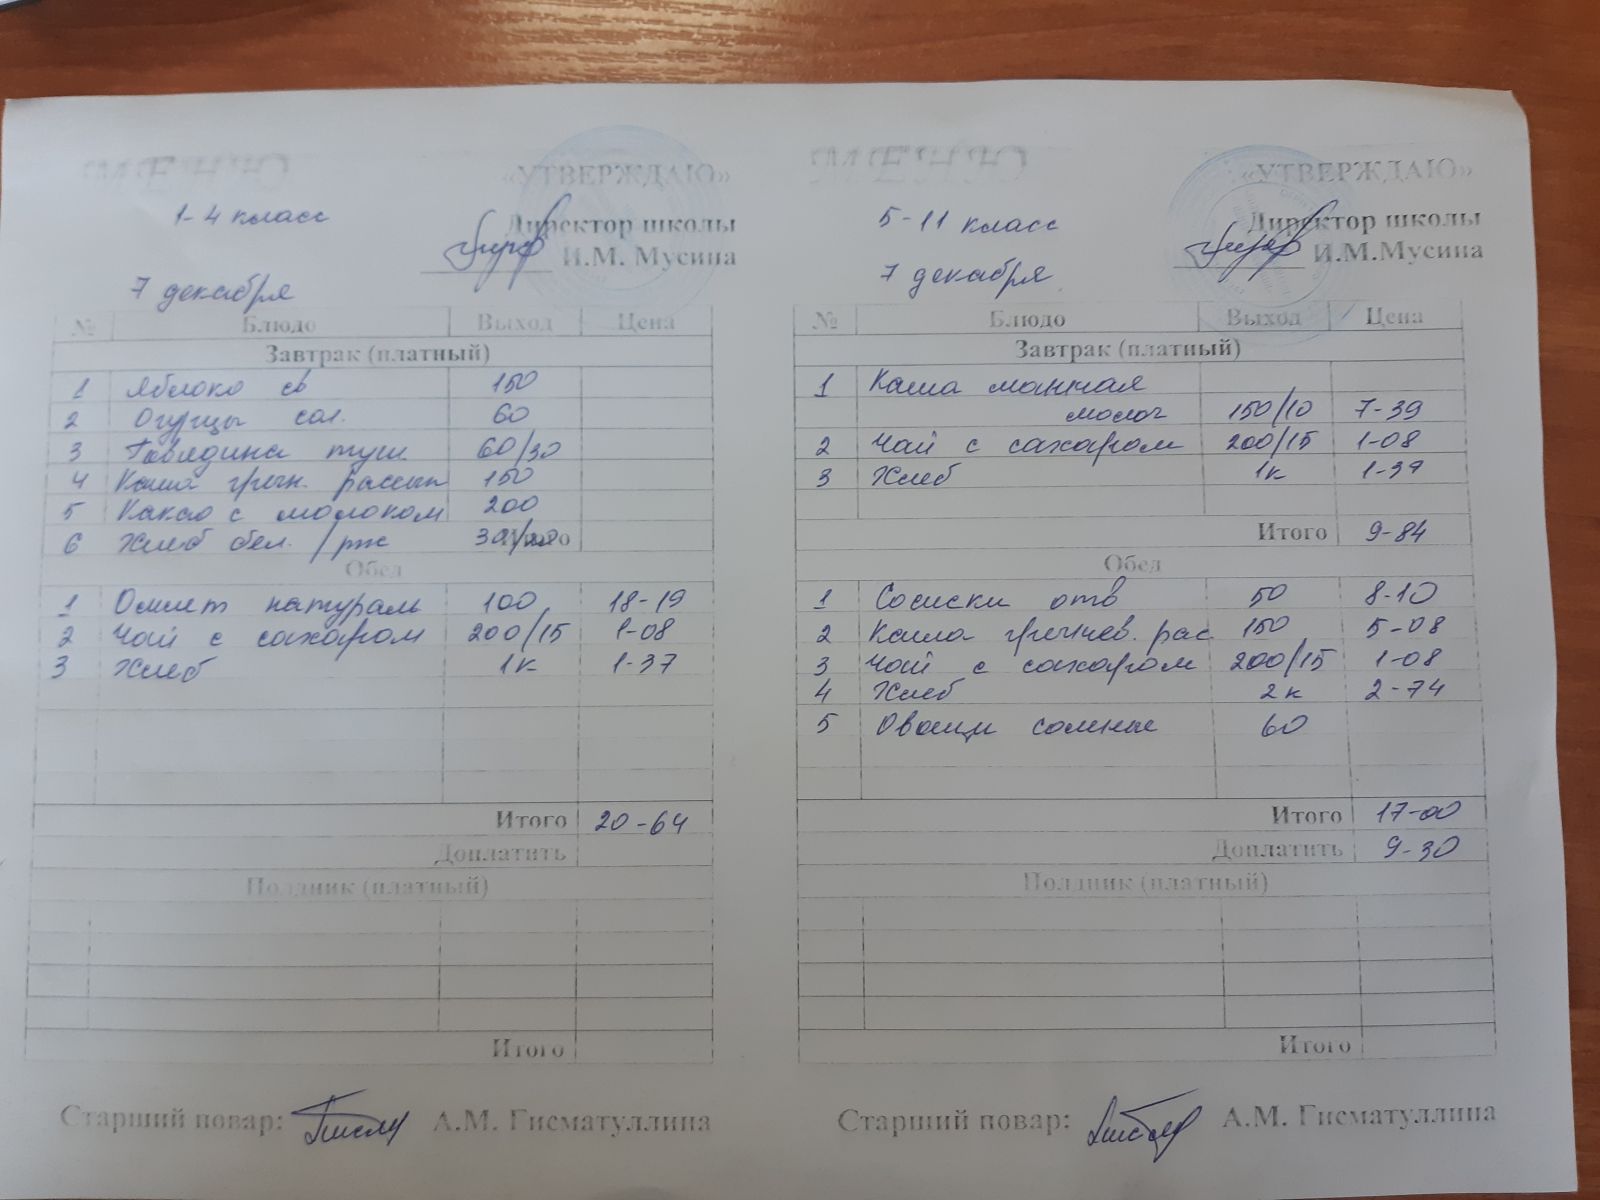 МЕНЮ «УТВЕРЖДАЮ»
1-4 класс Директор школы
И.М. Мусина
7 декабря
№ Блюдо Выход Цена
Завтрак (платный)
1 Яблоко св 150
2 Огурцы сол. 60
3 Говядина туш 60/30
4 Каша гречн. рассып 150
5 Какао с молоком 200
6 Хлеб бел. /рж 30/20 Итого
Обед
1 Омлет натураль 100 18-19
2 Чай с сахаром 200/15 1-08
3 Хлеб 1к 1-37
Итого 20-64
Доплатить
Полдник (платный)
Итого
Старший повар: А.М. Гисматуллина
МЕНЮ «УТВЕРЖДАЮ»
5-11 класс Директор школы
И.М.Мусина
7 декабря
№ Блюдо Выход Цена
Завтрак (платный)
1 Каша манная
молоч 150/10 7-39
2 Чай с сахаром 200/15 1-08
3 Хлеб 1к 1-37
Итого 9-84
Обед
1 Сосиски отв 50 8-10
2 Каша гречнев. рас. 150 5-08
3 Чай с сахаром 200/15 1-08
4 Хлеб 2к 2-74
5 Овощи соленые 60
Итого 17-00
Доплатить 9-30
Полдник (платный)
Итого
Старший повар: А.М. Гисматуллина